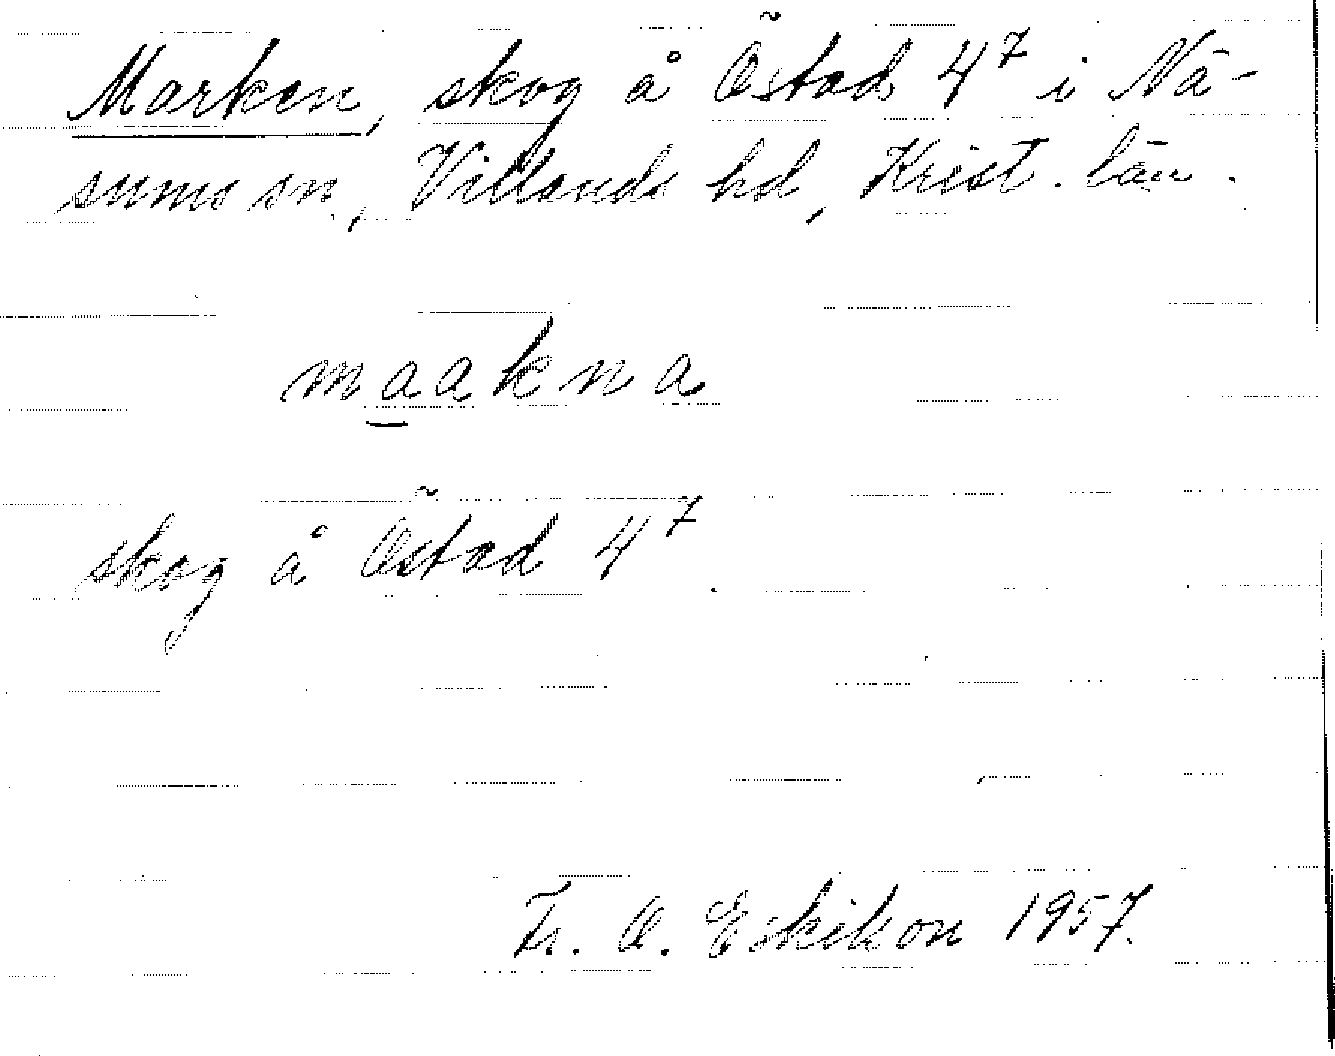 Marken, skog å Östad 4⁷ i Nä-
sums sn, Villands hd, Krist. län.
maakna
skog å Östad 4⁷
Fr. O. Eskilson 1957.